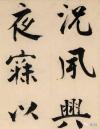 況夙興
夜寐以